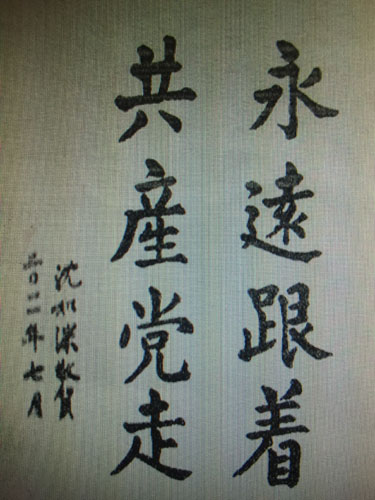 永遠跟着
共産党走
沈如潔敬賀
二〇二一年七月